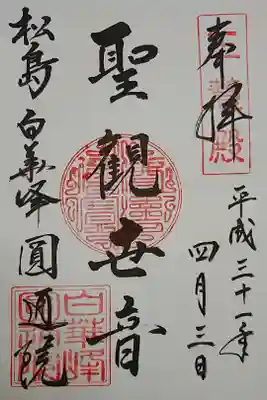 奉拝
平成三十一年
四月三日
聖観世音
松島 白華峰 圓通院
白華峰